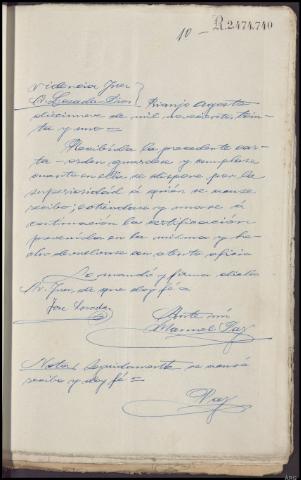 10 — R.2474.740
videncia Juez
Sr. Losada Dios } Rianjo Agosto
diecinueve de mil novecientos trein-
ta y uno =
Recibida la precedente car-
ta-orden, guárdese y cúmplase
cuanto en ella se dispone por la
superioridad á quién se acuse
recibo; coténdase y unase á
continuación la certificación
prevenida en la misma y he-
cho devuélvase con atento oficio
Lo mandó y firma dicho
Sr. Juez de que doy fé =
José Losada
Ante mi
Manuel Paz
Nota, Seguidamente se acusó
recibo y doy fé =
Paz